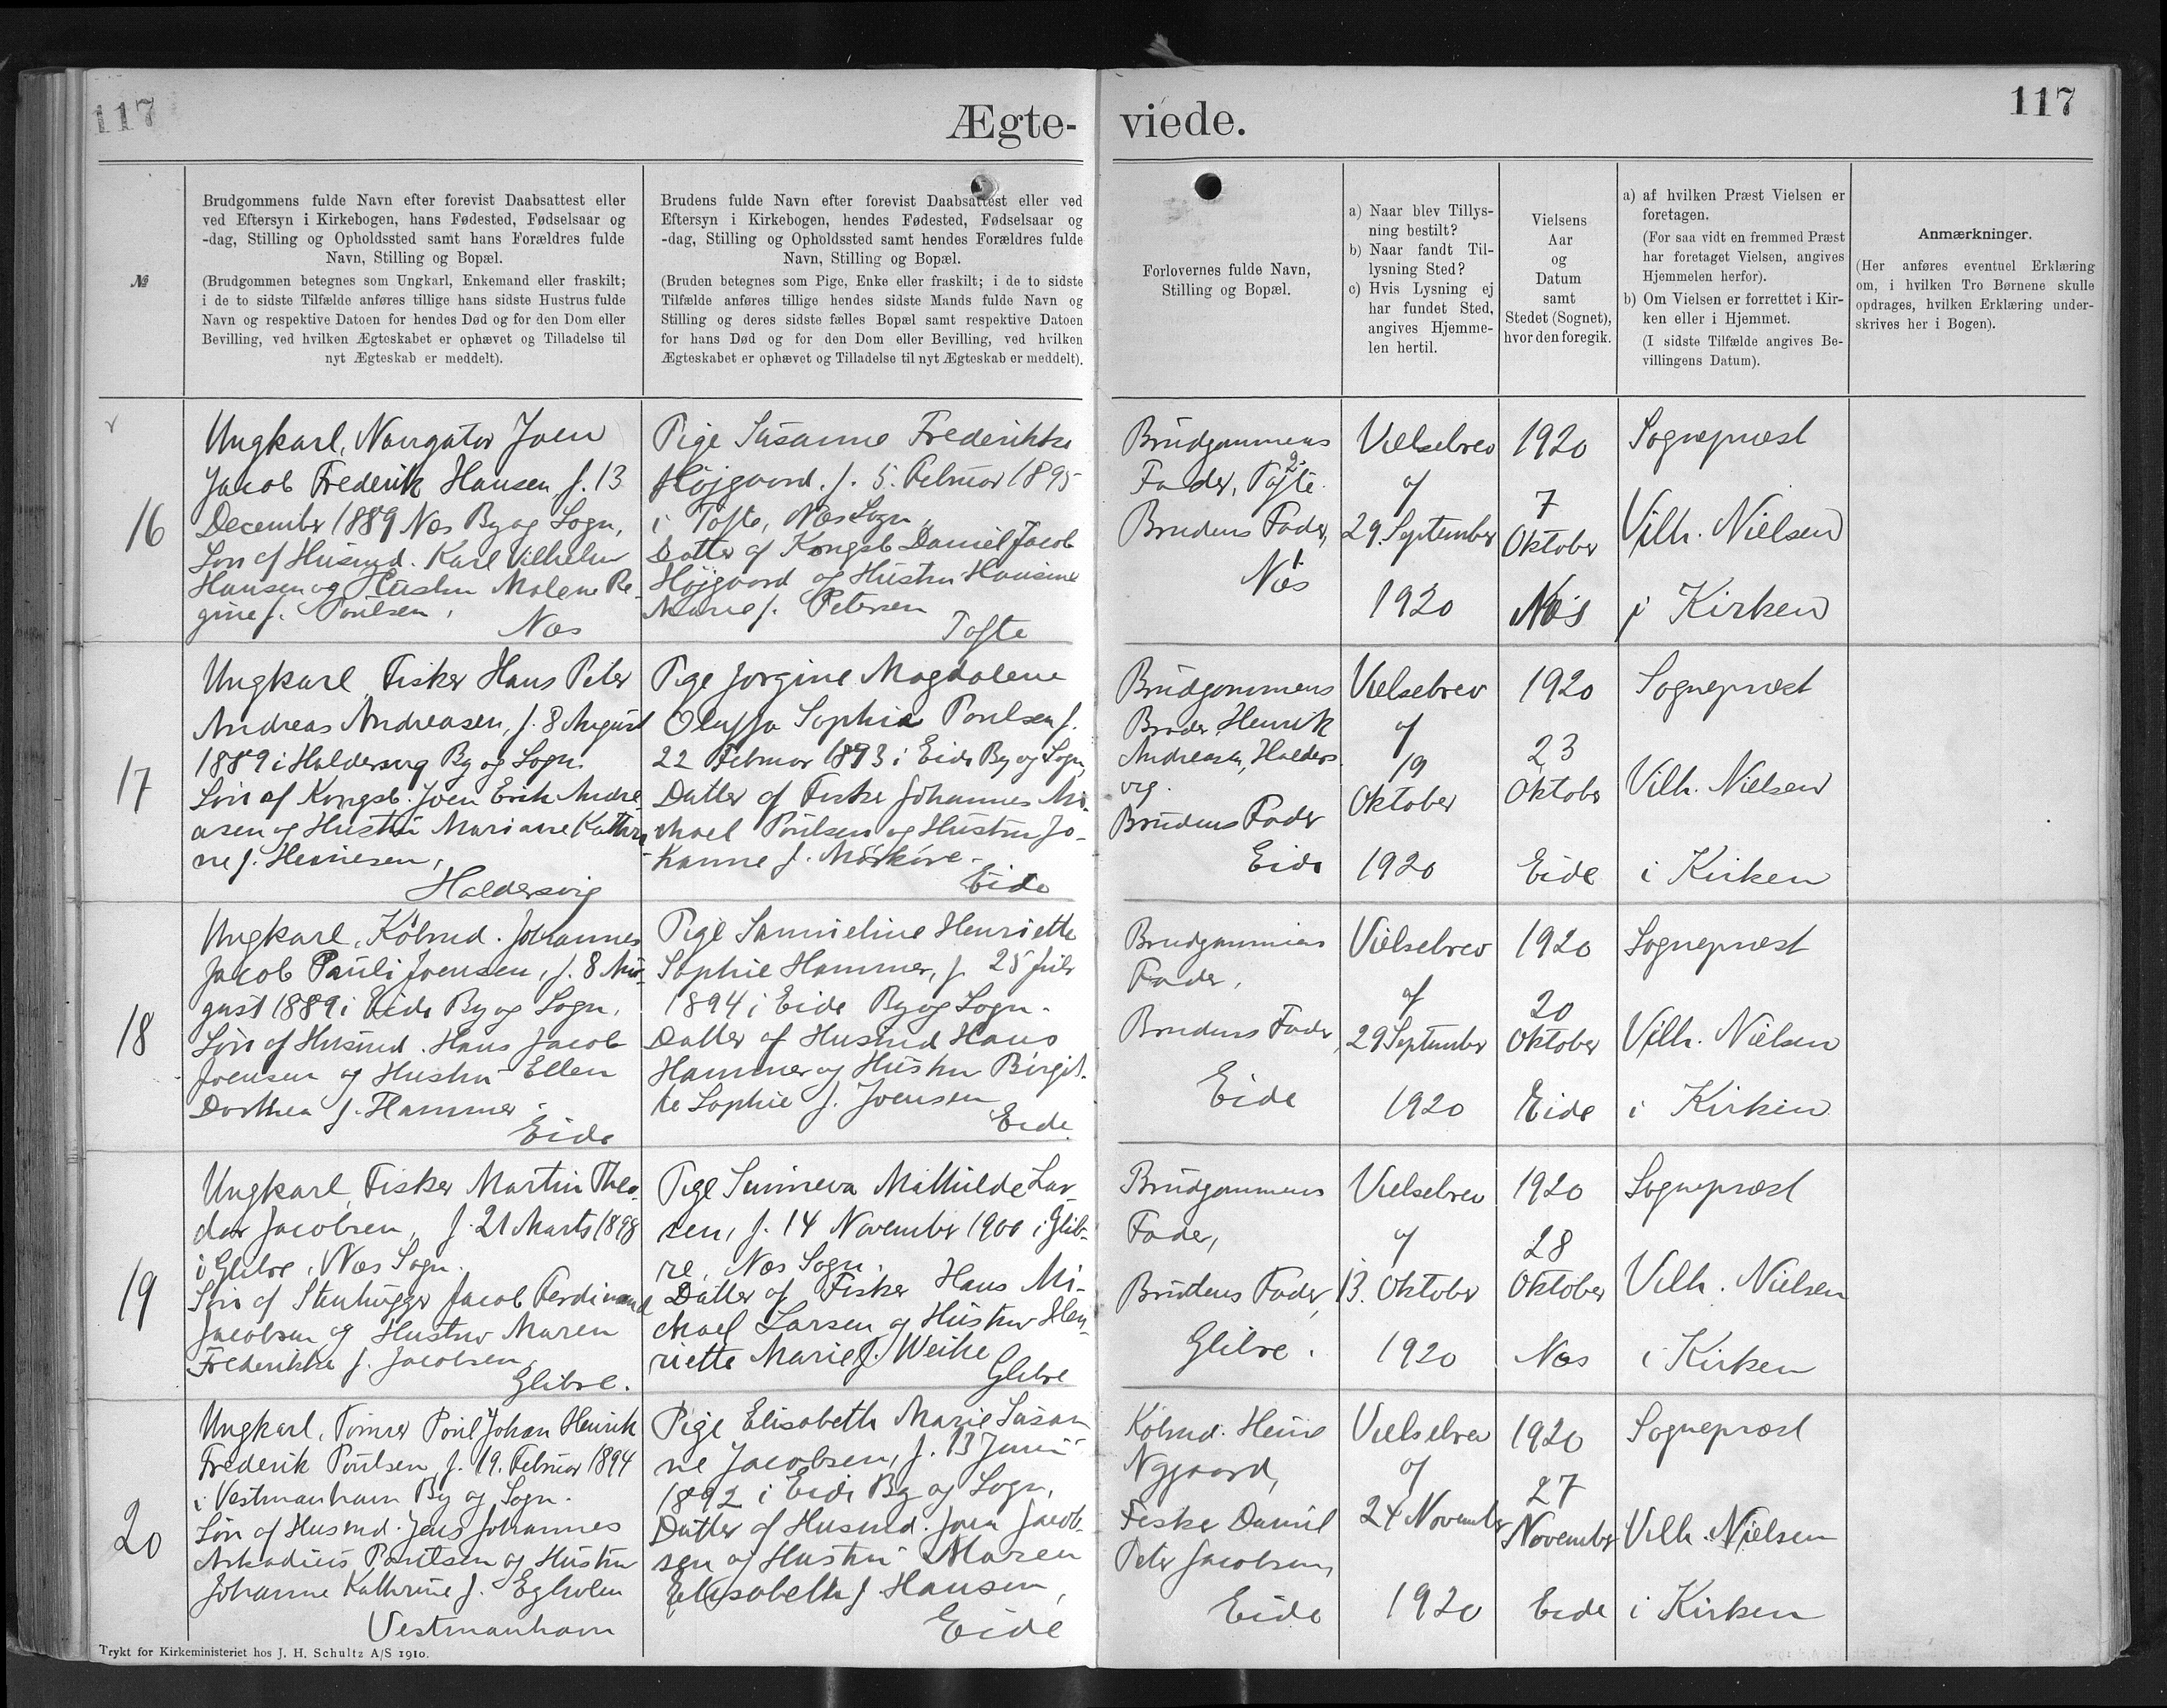 117
Ægte-
viede.
117
№
Brudgommens fulde Navn efter forevist Daabsattest eller
ved Eftersyn i Kirkebogen, hans Fødested, Fødselsaar og
-dag, Stilling og Opholdssted samt hans Forældres fulde
Navn, Stilling og Bopæl.
(Brudgommen betegnes som Ungkarl, Enkemand eller fraskilt;
i de to sidste Tilfælde anføres tillige hans sidste Hustrus fulde
Navn og respektive Datoen for hendes Død og for den Dom eller
Bevilling, ved hvilken Ægteskabet er ophævet og Tilladelse til
nyt Ægteskab er meddelt).
Brudens fulde Navn efter forevist Daabsattest eller ved
Eftersyn i Kirkebogen, hendes Fødested, Fødselsaar og
-dag, Stilling og Opholdssted samt hendes Forældres fulde
Navn, Stilling og Bopæl.
(Bruden betegnes som Pige, Enke eller fraskilt; i de to sidste
Tilfælde anføres tillige hendes sidste Mands fulde Navn og
Stilling og deres sidste fælles Bopæl samt respektive Datoen
for hans Død og for den Dom eller Bevilling, ved hvilken
Ægteskabet er ophævet og Tilladelse til nyt Ægteskab er meddelt).
Forlovernes fulde Navn,
Stilling og Bopæl.
a) Naar blev Tillys-
ning bestilt?
b) Naar fandt Til-
lysning Sted?
c) Hvis Lysning ej
har fundet Sted,
angives Hjemme-
len hertil.
Vielsens
Aar
og
Datum
samt
Stedet (Sognet),
hvor den foregik.
a) af hvilken Præst Vielsen er
foretagen.
(For saa vidt en fremmed Præst
har foretaget Vielsen, angives
Hjemmelen herfor).
b) Om Vielsen er forrettet i Kir-
ken eller i Hjemmet.
(I sidste Tilfælde angives Be-
villingens Datum).
Anmærkninger.
(Her anføres eventuel Erklæring
om, i hvilken Tro Børnene skulle
opdrages, hvilken Erklæring under-
skrives her i Bogen).
16
Ungkarl, Navigatør Joen
Jacob Frederik Hansen, f. 13
December 1889 Næs By og Sogn,
Søn af Husmd. Karl Vilhelm
Hansen og Hustru Malene Re-
gine f. Poulsen,
Næs
Pige Susanne Frederikke
Højgaard, f. 5. Februar 1895
i Tofte, Næs Sogn
Datter af Kongsb. Daniel Jacob
Højgaard og Hustru Hansine
Marie f. Petersen
Tofte
Brudgommens
Fader, Tofte 2
Brudens Fader,
Næs 1
Vielsebrev
af
29. September
1920
1920
7
Oktober
Næs
Sognepræst
Vilh. Nielsen
i Kirken
17
Ungkarl, Fisker Hans Peter
Andreas Andreasen, f. 8 August
1889 i Haldersvig By og Sogn.
Søn af Kongsb. Joen Erik Andre-
asen og Hustru Mariane Kathri-
ne f. Heinesen,
Haldersvig
Pige Jorgine Magdalene
Oluffa Sophie Poulsen f.
22 Februar 1893 i Eide By og Sogn,
Datter af Fisker Johannes Mi-
chael Poulsen og Hustru Jo-
hanne f. Mørkøre.
Eide
Brudgommens
Broder Henrik
Andreasen, Halders-
vig.
Brudens Fader
Eide
Vielsebrev
af
19
Oktober
1920
1920
23
Oktober
Eide
Sognepræst
Vilh. Nielsen
i Kirken
18
Ungkarl, Købmd. Johannes
Jacob Pauli Joensen, f. 8 Au-
gust 1889 i Eide By og Sogn.
Søn af Husmd. Hans Jacob
Joensen og Hustru Ellen
Dorthea f. Hammer.
Eide
Pige Sannieline Henriette
Sophie Hammer, f. 25 Juli
1894 i Eide By og Sogn.
Datter af Husmd Hans
Hammer og Hustru Birgit-
te Sophie f. Joensen
Eide
Brudgommens
Fader,
Brudens Fader,
Eide
Vielsebrev
af
29 September
1920
1920
20
Oktober
Eide
Sognepræst
Vilh. Nielsen
i Kirken
19
Ungkarl, Fisker Martin Theo-
dor Jacobsen, f. 21 Marts 1898
i Glibre, Næs Sogn.
Søn af Stenhugger Jacob Ferdinand
Jacobsen og Hustru Maren
Frederikke f. Jacobsen,
Glibre.
Pige Sunneva Mathilde Lar-
sen, f. 14 November 1900 i Glib-
re, Næs Sogn.
Datter af Fisker Hans Mi-
chael Larsen og Hustru Hen-
riette Marie f. Weihe
Glibre
Brudgommens
Fader,
Brudens Fader,
Glibre.
Vielsebrev
af
13. Oktober
1920
1920
28
Oktober
Næs
Sognepræst
Vilh. Nielsen
i Kirken
20
Ungkarl, Tømrer Poul Johan Henrik
Frederik Poulsen f. 19. Februar 1894
i Vestmanhavn By og Sogn.
Søn af Husmd. Jens Johannes
Arkadius Poulsen og Hustru
Johanne Kathrine f. Egholm
Vestmanhavn
Pige Elisabeth Marie Susan-
ne Jacobsen, f. 13 Juni
1892 i Eide By og Sogn,
Datter af Husmd. Joen Jacob-
sen og Hustru Maren
Elisabeth f Hansen,
Eide
Købmd. Heine
Nygaard,
Fisker Daniel
Peter Jacobsen,
Eide
Vielsebrev
af
24 November
1920
1920
27
November
Eide
Sognepræst
Vilh. Nielsen
i Kirken
Trykt for Kirkeministeriet hos J. H. Schultz A/S 1910.